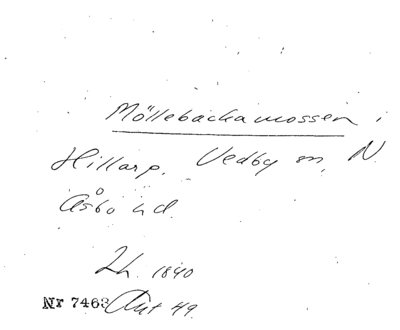 Möllebackamossen i
Hillarp. Vedby sn, N.
Åsbo hd.
Lh. 1840
Nr 7463 Ant 49